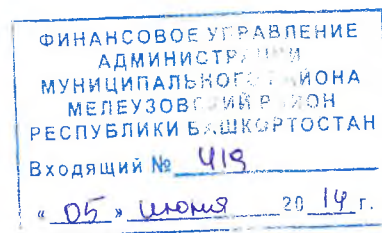 ФИНАНСОВОЕ УПРАВЛЕНИЕ
АДМИНИСТРАЦИИ
МУНИЦИПАЛЬНОГО РАЙОНА
МЕЛЕУЗОВСКИЙ РАЙОН
РЕСПУБЛИКИ БАШКОРТОСТАН
Входящий № 419
« 05 » июня 20 14 г.